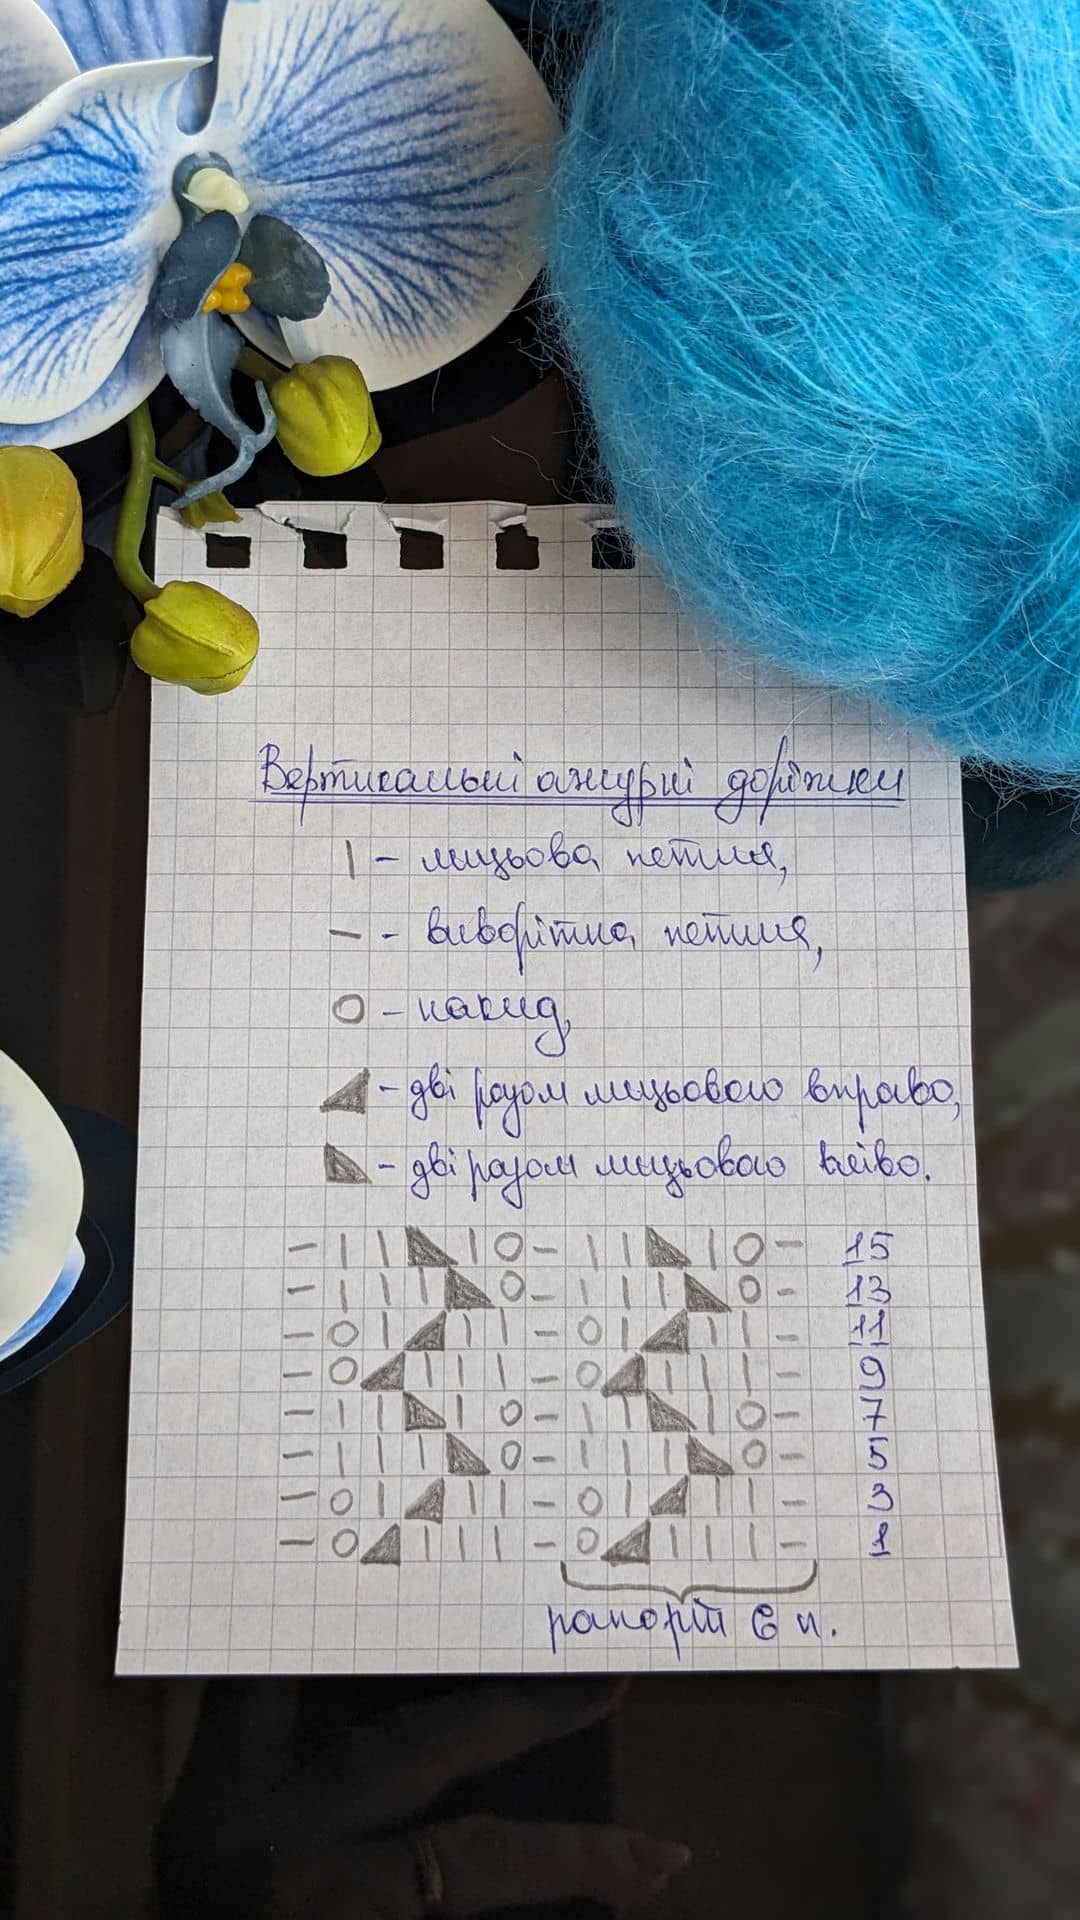 Вертикальні ажурні доріжки
| - лицьова петля,
— - виворітна петля,
O - накид,
◢ - дві разом лицьовою вправо,
◣ - дві разом лицьовою вліво.
— | | ◣ | O — | | ◣ | O — 15
— | | | ◣ O — | | | ◣ O — 13
— O | ◢ | | — O | ◢ | | — 11
— O ◢ | | | — O ◢ | | | — 9
— | | ◣ | O — | | ◣ | O — 7
— | | | ◣ O — | | | ◣ O — 5
— O | ◢ | | — O | ◢ | | — 3
— O ◢ | | | — O ◢ | | | — 1
рапорт 6 п.